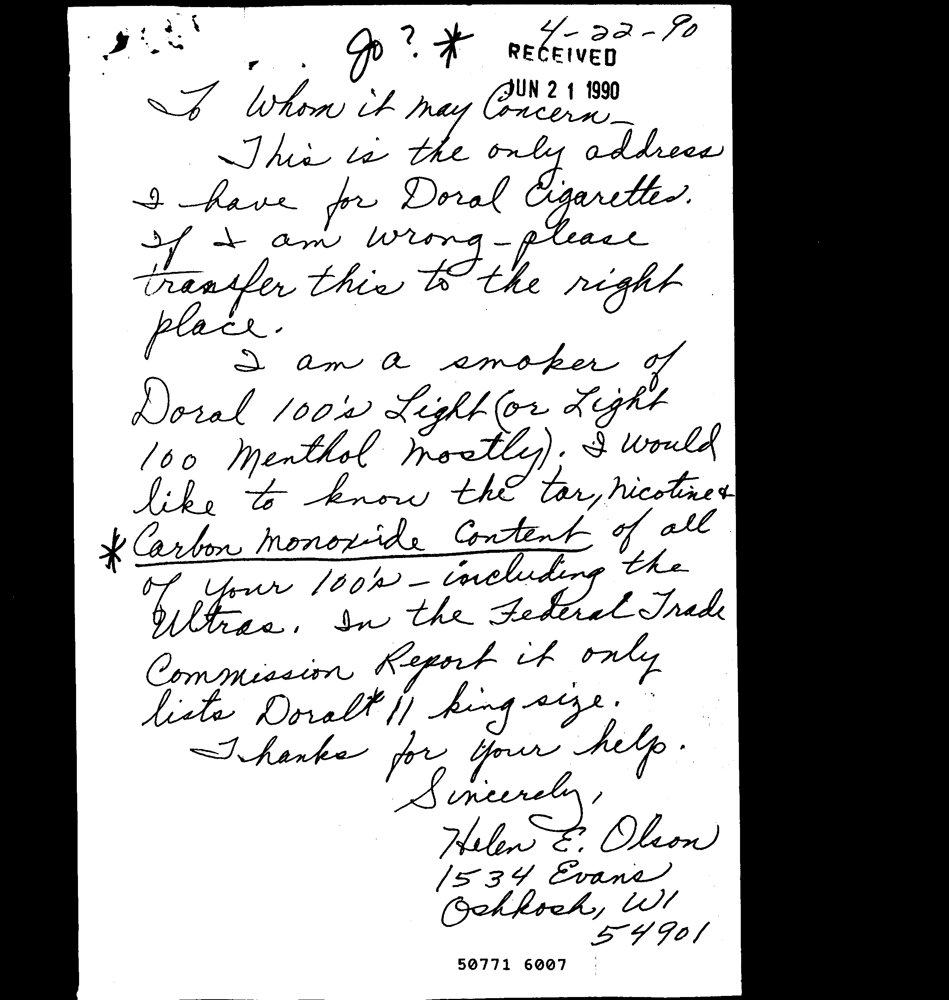 go? * 4-22-90
RECEIVED
JUN 21 1990
To Whom it may Concern-
This is the only address
I have for Doral Cigarettes.
If I am wrong - please
transfer this to the right
place.
I am a smoker of
Doral 100's Light (or Light
100 Menthol mostly). I would
like to know the tar, nicotine &
* Carbon Monoxide Content of all
of your 100's - including the
Ultras. In the Federal Trade
Commission Report it only
lists Doral * II king size.
Thanks for your help.
Sincerely,
Helen E. Olson
1534 Evans
Oshkosh, WI
54901
50771 6007